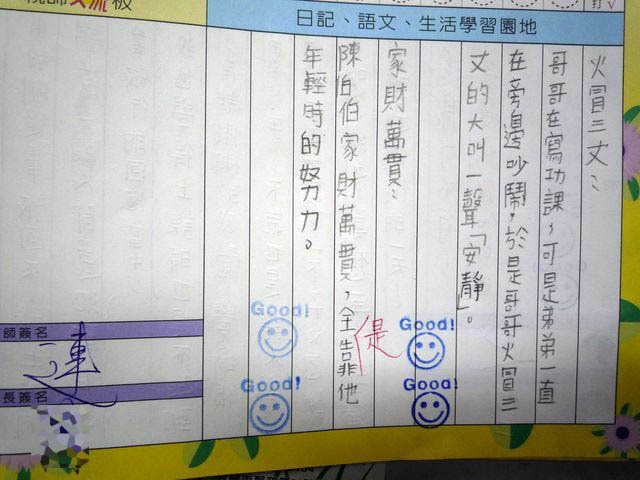 親師交流板
日記、語文、生活學習園地
火冒三丈：
哥哥在寫功課，可是弟弟一直
在旁邊吵鬧，於是哥哥火冒三
丈的大叫一聲「安靜」。
家財萬貫：
陳伯伯家財萬貫，全靠他
是
年輕時的努力。
Good!
Good!
Good!
Good!
師簽名
連
長簽名